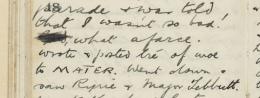 parade & was told
that I wasn't so bad!
what a farce.
wrote & posted tre of woe
to MATER. Went down &
saw Ryrie & Major Tebbutt.